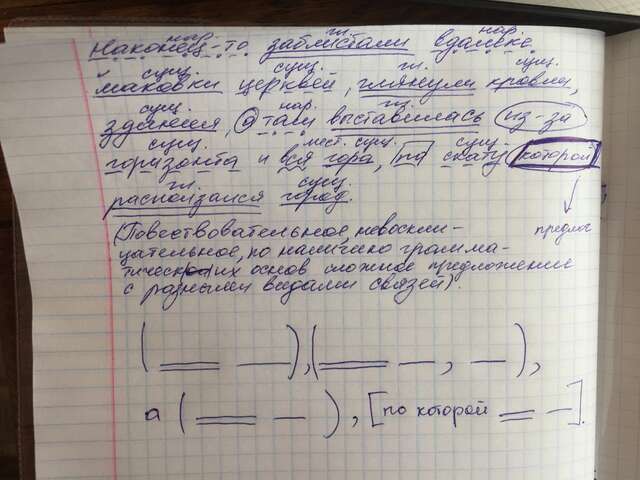 нар. гл. нар.
Наконец-то заблистали вдалеке
сущ. сущ. гл. сущ.
маковки церквей, глянули кровли,
сущ. нар. гл.
здания, а там выставилась из-за
сущ. мест. сущ. сущ.
горизонта и вся гора, по скату которой
гл. сущ.
расползался город.
(Повествовательное, невоскли- предлог
цательное, по наличию грамма-
тических основ сложное предложение
с разными видами связей).
( ), ( , ),
а ( ), [по которой ].